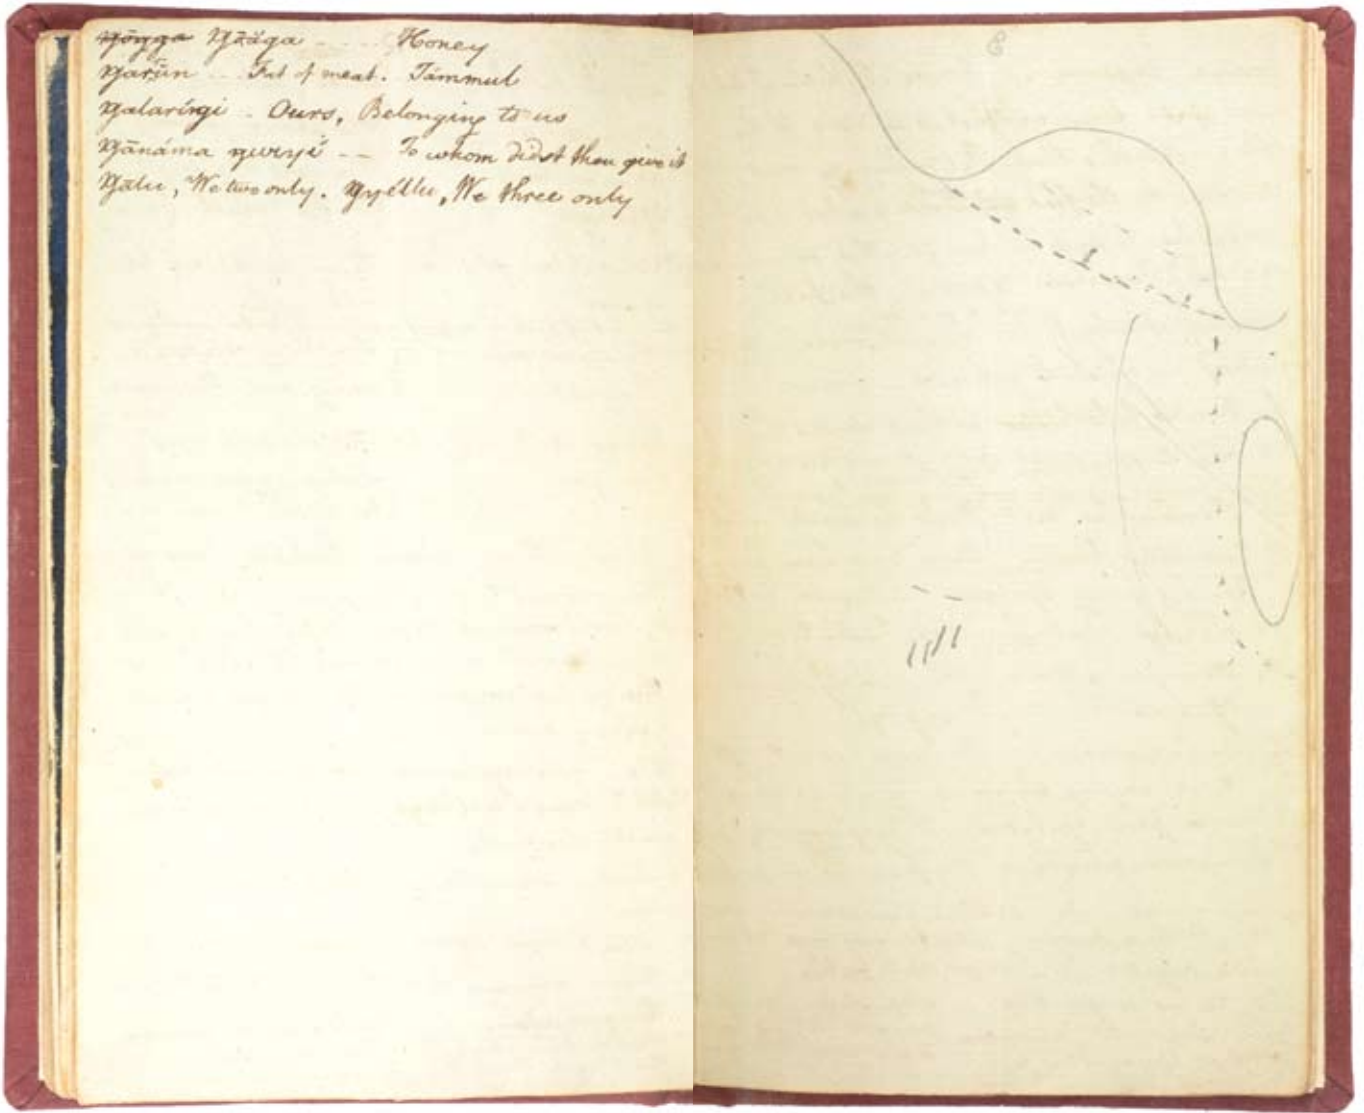 Honey
Ŋarün -- Fat of meat. Támmul
Ŋalaríŋi - Ours, Belonging to us
Ŋānáma ŋwiyi -- To whom didst thou give it
Ŋálu, We two only. Ŋyéllu, We three only